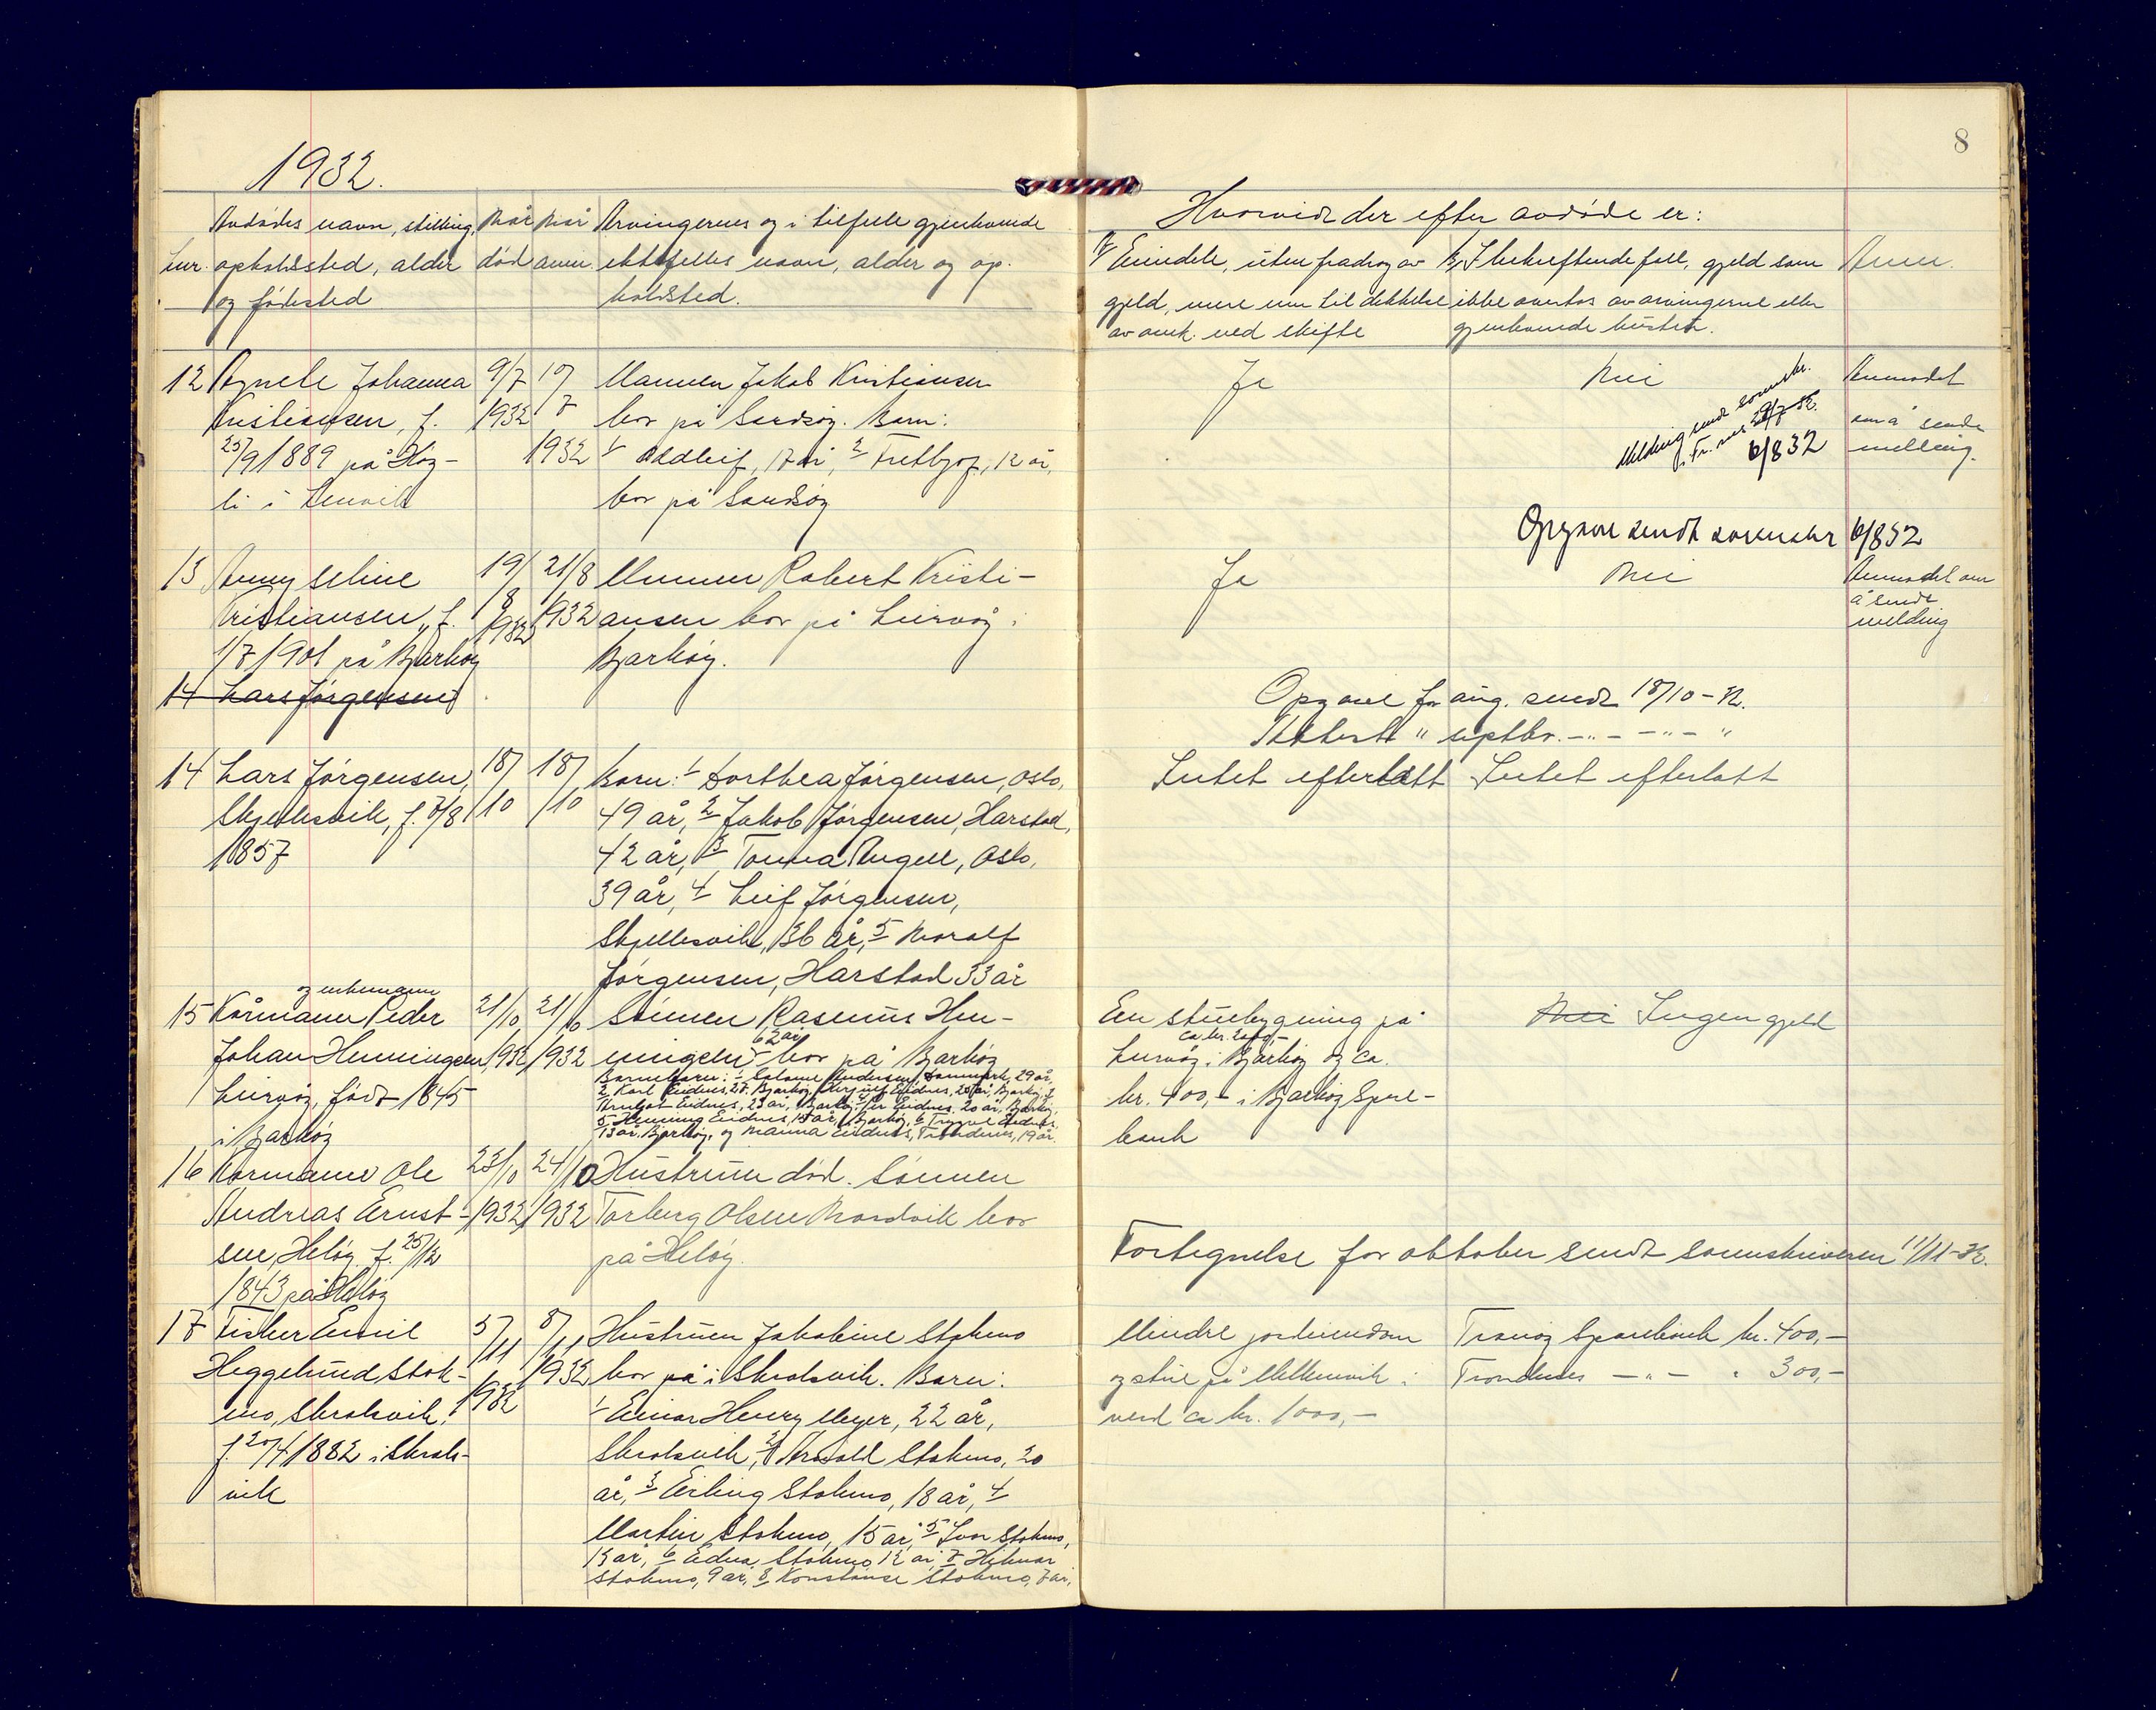 1932.
8
Avdødes navn, stilling,
Lnr. opholdsted, alder
og fødested
Når
død
Når
anm.
Arvingernes og i tilfelle gjenlevende
ektefelles navn, alder og op-
holdsted.
Hvorvidt der efter avdøde er:
a/ Eiendele, uten fradrag av
gjeld, mere enn til dekkelse
av omk. ved skifte
b/ I bekreftende fall, gjeld som
ikke overtas av arvingerne eller
gjenlevende hustru.
Anm.
12 Agnele Johanna
Kristiansen, f.
25/9 1889 på Høg-
li i Lenvik
9/7
1932
19/
7
1932
Mannen Jakob Kristiansen
bor på Sandsøy. Barn:
1 Oddleif, 17 år, 2 Fritjof, 12 år,
bor på Sandsøy
Ja
Nei
Melding sendt sorenskr.
29/7-32.
6/8 32
Anmodet
om å sende
melding.
Opgave sendt sorenskr 6/8 32
13 Anny Seline
Kristiansen, f.
1/7 1901 på Bjarkøy
19/
8
1932
21/8
1932
Mannen Robert Kristi-
ansen bor på Leirvåg i
Bjarkøy.
Ja
Nei
Anmodet om
å sende
melding
14 Lars Jørgensen
Opgave for aug. sendt 18/10-32.
Attest " septbr. -"- -"- "
14 Lars Jørgensen,
Skjellesvik, f. 7/8
1857
18/
10
18/
10
Barn: 1 Dorthea Jørgensen, Oslo,
49 år, 2 Jakob Jørgensen, Harstad,
42 år, 3 Tomma Angell, Oslo,
39 år, 4 Leif Jørgensen,
Skjellesvik, 36 år, 5 Noralf
Jørgensen, Harstad 33 år
Intet efterlatt
Intet efterlatt
og enkemann
15 Kårmann Peder
Johan Henningsen,
Leirvåg, født 1845
i Bjarkøy
21/10
1932
21/10
1932
Sønnen Rasmus Hen-
62 år
ningsen bor på Bjarkøy
Barnebarn: 1 Salome Andersen, Danmark, 29 år,
2 Karl Eidnes, 27, Bjarkøy,
Eidnes, 23 år, Bjarkøy, Eidnes, 20 år, Bjarkøy,
5 Henning Eidnes, 15 år, Bjarkøy, 6 Trygve Eidnes,
13 år, Bjarkøy, og Marina Eidnes, Trondenes, 19 år.
En stuebygning på
ca kr. 2000,-
Leirvåg i Bjarkøy og ca.
kr. 400,- i Bjarkøy Spare-
bank
Nei Ingen gjeld
16 Kårmann Ole
Andreas Ernst-
sen, Meløy, f. 25/12
1843 på Meløy
23/10
1932
24/10
1932
Hustruen død. Sønnen
Torberg Olsen Nordvik bor
på Meløy.
Fortegnelse for oktober sendt sorenskriveren 11/11-32.
17 Fisker Emil
Heggelund Stok-
mo, Skrolsvik,
f. 20/4 1882 i Skrols-
vik
5/
11
1932
8/
11
1932
Hustruen Jakobine Stokmo
bor på i Skrolsvik. Barn:
1 Einar Henry Meyer, 22 år,
Skrolsvik, 2 Arnold Stokmo, 20
år, 3 Erling Stokmo, 18 år, 4
Martin Stokmo, 15 år, 5 Ivar Stokmo,
13 år, 6 Edna Stokmo 12 år, 7 Hilmar
Stokmo, 9 år, 8 Konstanse Stokmo, 7 år.
Mindre jordeiendom
og stue på Mellemvik i
verd ca kr. 1000,-
Tranøy Sparebank kr. 400,-
Trondenes -"- " 300,-